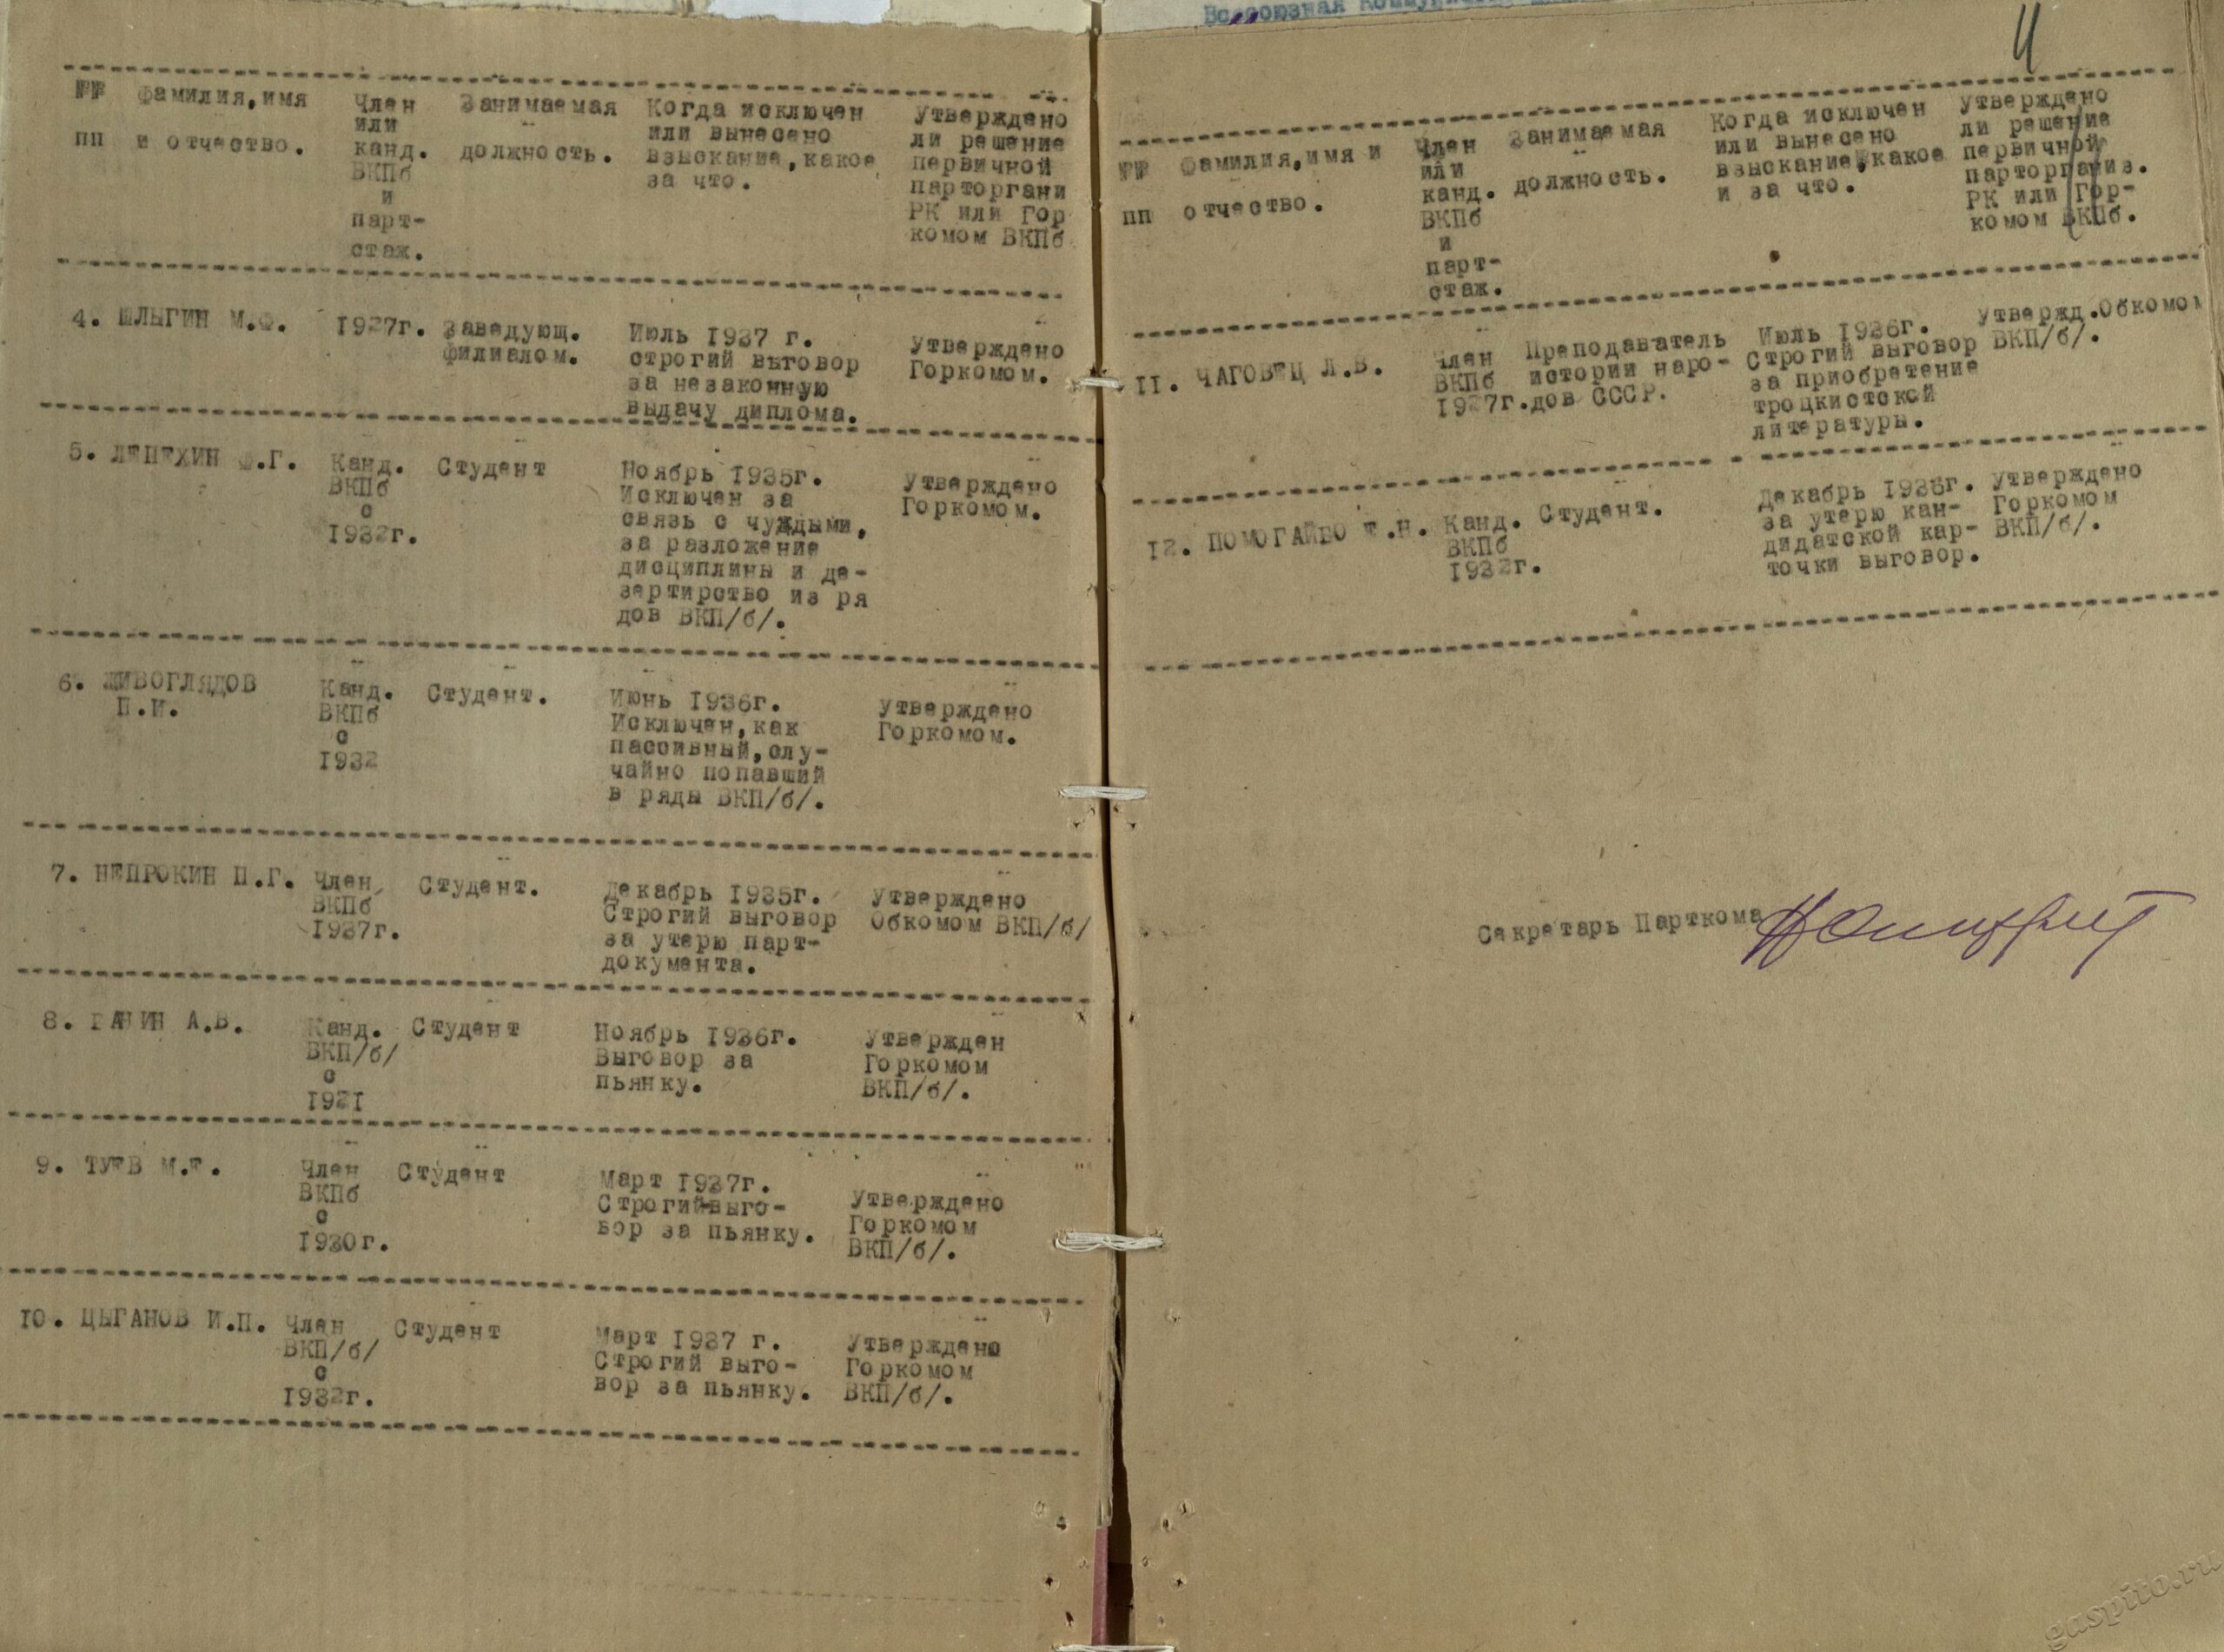 №№ Фамилия,имя Член Занимаемая Когда исключен Утверждено
или или вынесено ли решение
пп и отчество. канд. должность. взыскание,какое первичной
ВКПб за что. парторгани
и РК или Гор
парт- комом ВКПб
стаж.
4. ШЛЫГИН М.Ф. 1927г. Заведующ. Июль 1937 г. Утверждено
филиалом. строгий выговор Горкомом.
за незаконную
выдачу диплома.
5. ЛЕПЕХИН Ф.Г. Канд. Студент Ноябрь 1935г. Утверждено
ВКПб Исключен за Горкомом.
с связь с чуждыми,
1932г. за разложение
дисциплины и де-
зертирство из ря
дов ВКП/б/.
6. ЖИВОГЛЯДОВ Канд. Студент. Июнь 1936г. Утверждено
П.И. ВКПб Исключен,как Горкомом.
с пассивный,слу-
1932 чайно попавший
в ряды ВКП/б/.
7. НЕПРОКИН П.Г. Член Студент. Декабрь 1935г. Утверждено
ВКПб Строгий выговор Обкомом ВКП/б/
1937г. за утерю парт-
документа.
8. ГАНИН А.В. Канд. Студент Ноябрь 1936г. Утвержден
ВКП/б/ Выговор за Горкомом
с пьянку. ВКП/б/.
1931
9. ТУЕВ М.Е. Член Студент Март 1937г. Утверждено
ВКПб Строгий-выго- Горкомом
с вор за пьянку. ВКП/б/.
1930г.
10. ЦЫГАНОВ И.П. Член Студент Март 1937 г. Утверждено
ВКП/б/ Строгий выго- Горкомом
с вор за пьянку. ВКП/б/.
1932г.
Всесоюзная
№№ Фамилия,имя и Член Занимаемая Когда исключен Утверждено
или или вынесено ли решение
пп отчество. канд. должность. взыскание,какое первичной
ВКПб и за что. парторганиз.
и РК или Гор-
парт- комом ВКПб.
стаж.
11. ЧАГОВЕЦ Л.В. Член Преподаватель Июль 1936г. Утвержд.Обкомом
ВКПб истории наро- Строгий выговор ВКП/б/.
1927г.дов СССР. за приобретение
троцкистской
литературы.
12. ПОМОГАЙБО Т.Н. Канд. Студент. Декабрь 1935г. Утверждено
ВКПб за утерю кан- Горкомом
1932г. дидатской кар- ВКП/б/.
точки выговор.
Секретарь Парткома
gaspito.ru